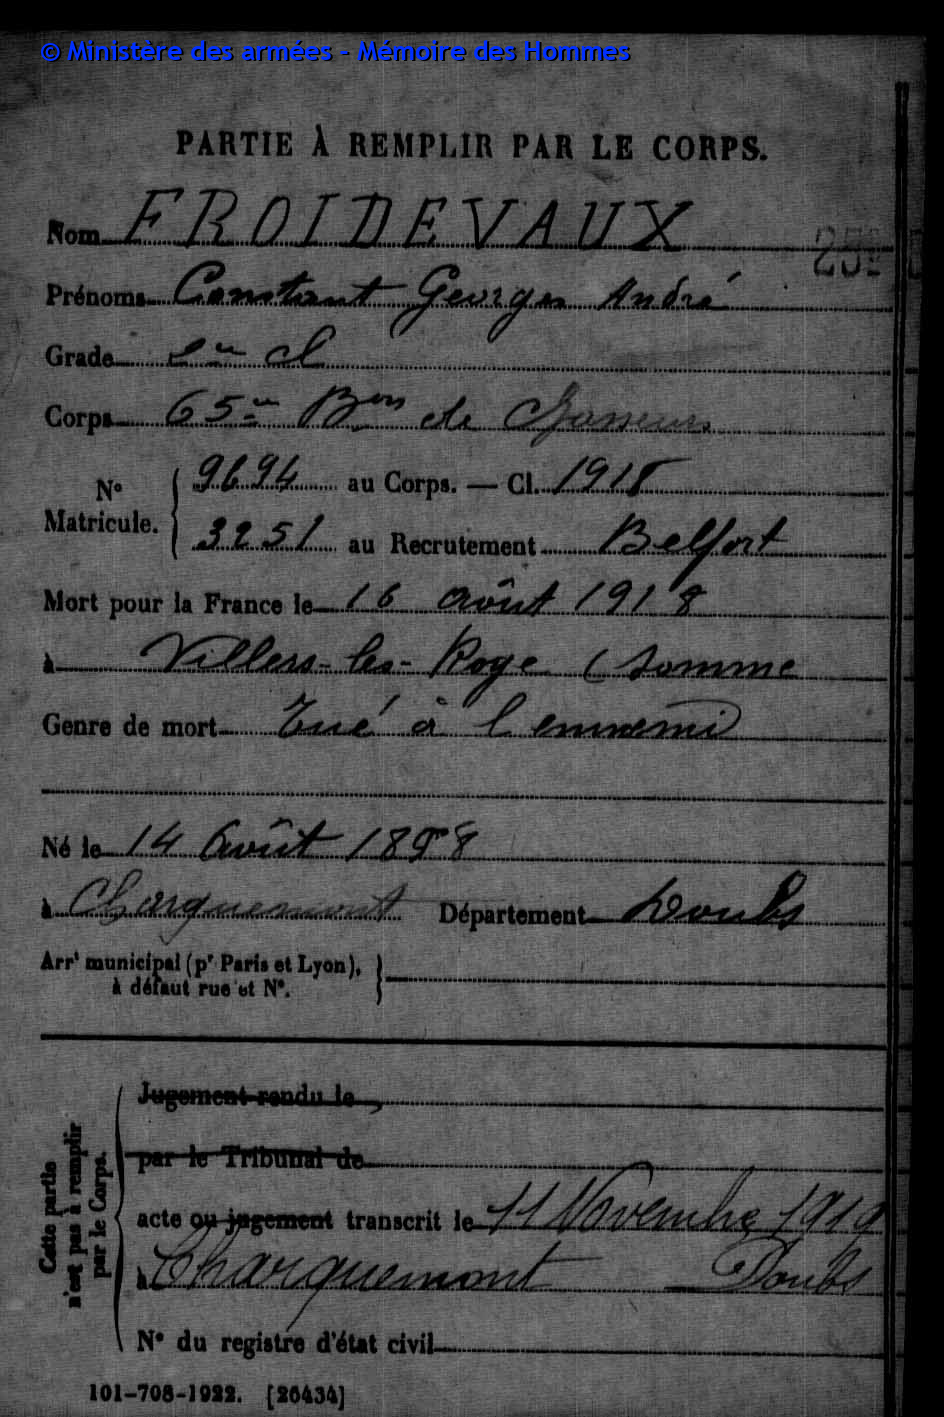 © Ministère des armées - Mémoire des Hommes
PARTIE À REMPLIR PAR LE CORPS.
Nom FROIDEVAUX
Prénoms Constant Georges André
Grade 2e cl
Corps 65e Bon de Chasseurs
N° Matricule. { 9694 au Corps. — Cl. 1918
3251 au Recrutement Belfort
Mort pour la France le 16 août 1918
à Villers-les-Roye (Somme
Genre de mort Tué à l'ennemi
Né le 14 Août 1898
à Charquemont Département Doubs
Arrt municipal (pr Paris et Lyon),
à défaut rue et N°.
Cette partie n'est pas à remplir par le Corps.
Jugement rendu le
par le Tribunal de
acte ou jugement transcrit le 11 Novembre 1919
à Charquemont Doubs
N° du registre d'état civil
101-708-1922. [26434]